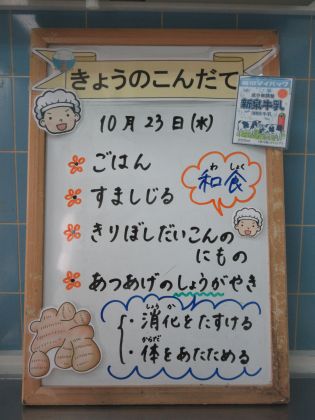 きょうのこんだて
10月23日(水)
ごはん
和食
わ しょく
すましじる
きりぼしだいこんの
にもの
あつあげのしょうがやき
・消化をたすける
しょうか
・体をあたためる
からだ
新泉牛乳